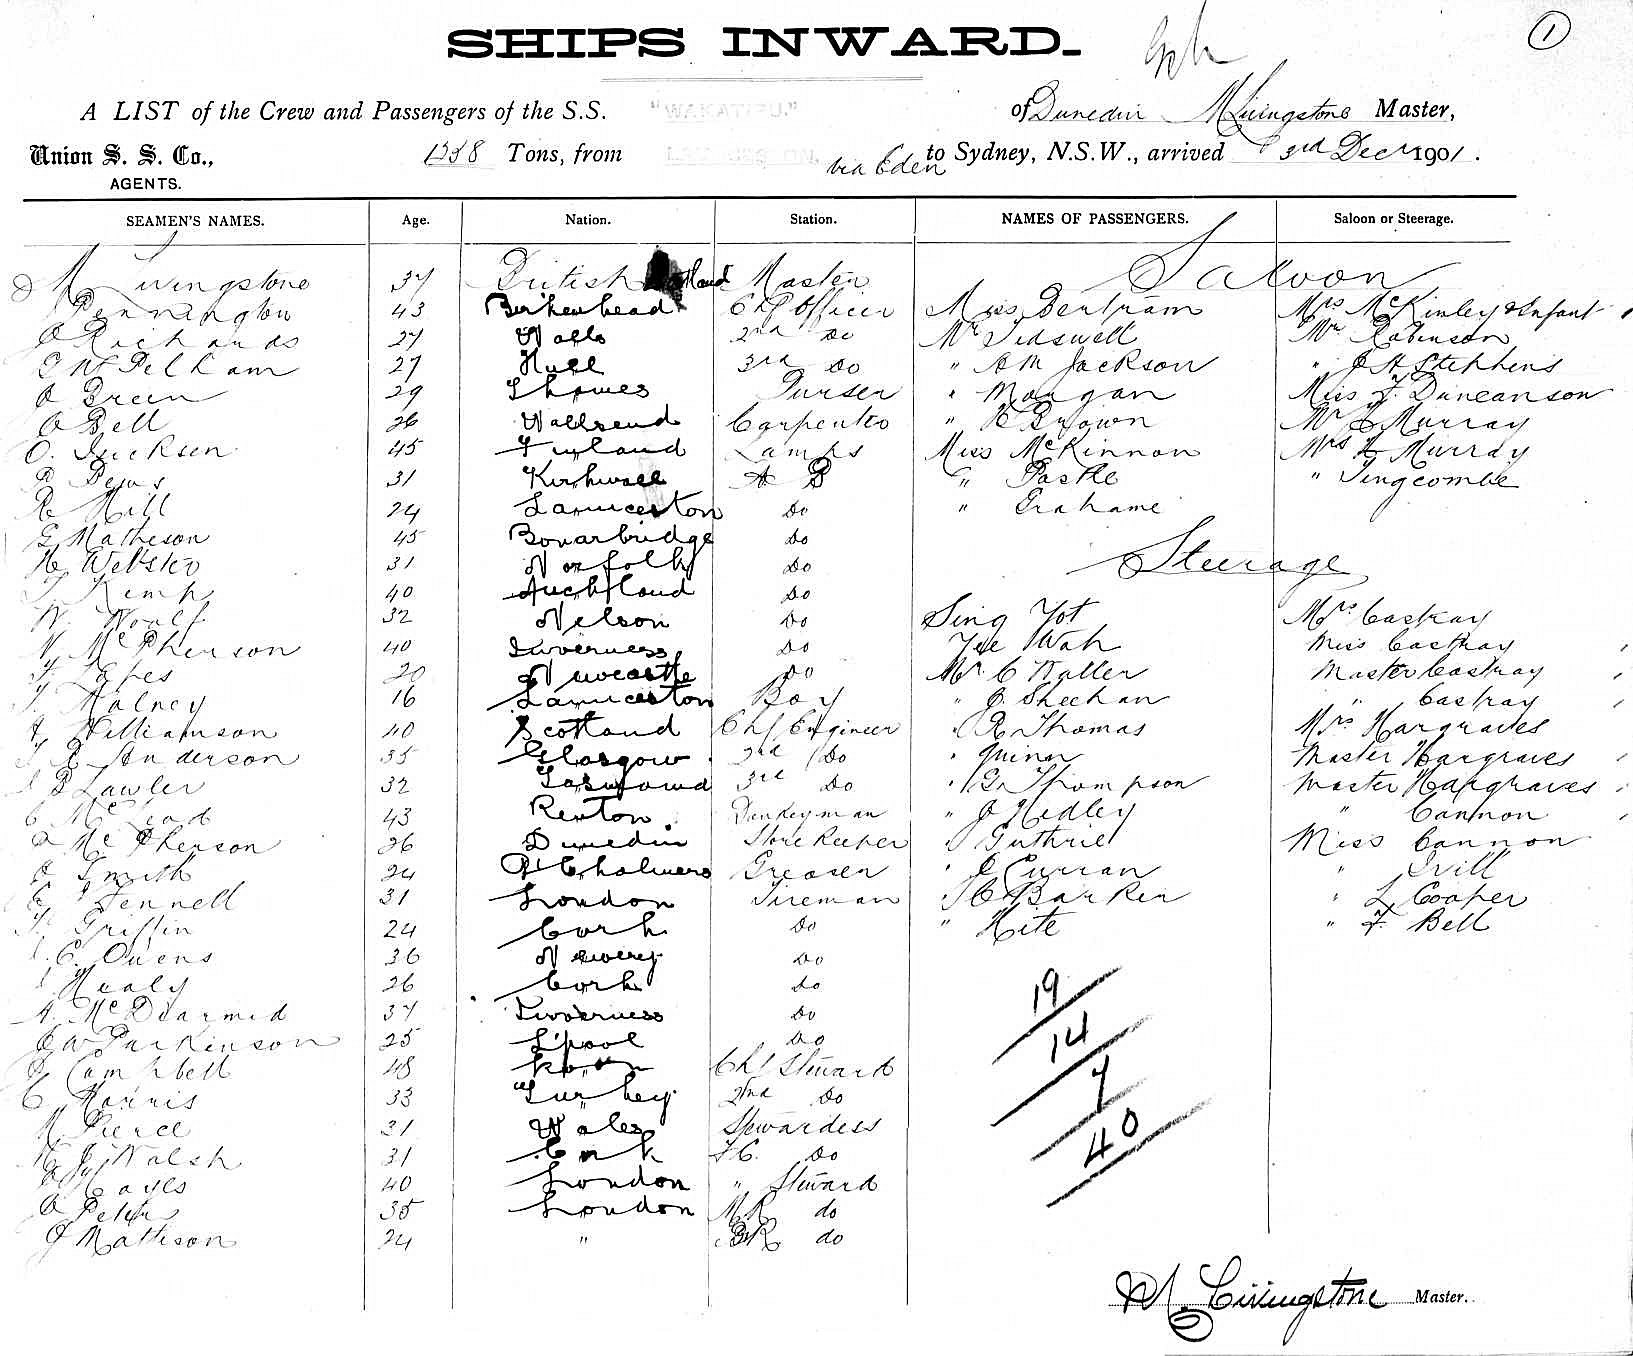 1
SHIPS INWARD.
A LIST of the Crew and Passengers of the S.S. of Dunedin M Livingstone Master,
Union S. S. Co., 1338 Tons, from via Eden to Sydney, N.S.W., arrived 3rd Decr 1901.
AGENTS.
SEAMEN'S NAMES. Age. Nation. Station. NAMES OF PASSENGERS. Saloon or Steerage.
Saloon
M Livingstone 37 British Master
Pennington 43 Birkenhead Chf Officer Miss Bertram Mrs McKinley & Infant
Richards 27 Wales 2nd Do Mr Tidswell Mr Robinson
E W Pelham 27 Hull 3rd Do " A M Jackson " J H Stephens
Green 29 Thames Purser " Morgan Miss F. Duncanson
Bell 26 Wallsend Carpenter " Brown Mr Murray
O. Jackson 45 Finland Lamps Miss McKinnon Mrs Murray
31 Kirkwall A B " Paske " Tingcombe
R Hill 24 Launceston Do " Grahame
G Matheson 45 Bonarbridge Do
H Webster 31 Norfolk Do Steerage
T Kemp 40 Auckland Do
W. Woolf 32 Nelson Do Sing Yot Mrs Castray
McPherson 40 Inverness Do Yee Wah Miss Castray
20 Newcastle Do Mr C Waller Master Castray
Malney 16 Launceston Boy " J. Sheehan " Castray
Williamson 40 Scotland Chf Engineer " R Thomas Mrs Hargraves
Anderson 35 Glasgow 2nd Do " Quinn Master Hargraves
Lawler 32 3rd Do " G. Thompson Master Hargraves
43 Renton Donkeyman " J Hedley " Cannon
McPherson 26 Dunedin Store Keeper " Guthrie Miss Cannon
Smith 24 Pt Chalmers Greaser " J Curran "
Fennell 31 London Fireman " Barker " L Cooper
Griffin 24 Cork Do " Kite " F. Bell
C. Owens 36 Newery Do
Healy 26 Cork Do
A. McDiarmid 37 Inverness Do
Parkinson 25 L'pool Do
Campbell 48 Chf Steward
C Harris 33 Turkey 2nd Do
M Pierce 31 Wales Stewardess
Walsh 31 Cork F.C. Do
Hayes 40 London " Steward
Peters 35 London M R do
J Mattison 24 " B R do
19
14
7
40
M. Livingstone Master.